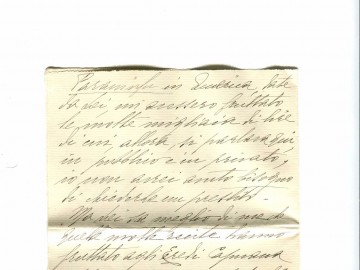 Paraninfo in America, fate
da lei, mi avessero fruttato
le molte migliaia di lire
di cui allora, si parlava qui
in pubblico e in privato,
io non avrei avuto bisogno
di chiederle un prestito.
Ma lei sa meglio di me che
quelle molte recite hanno
fruttato agli Eredi Capuana